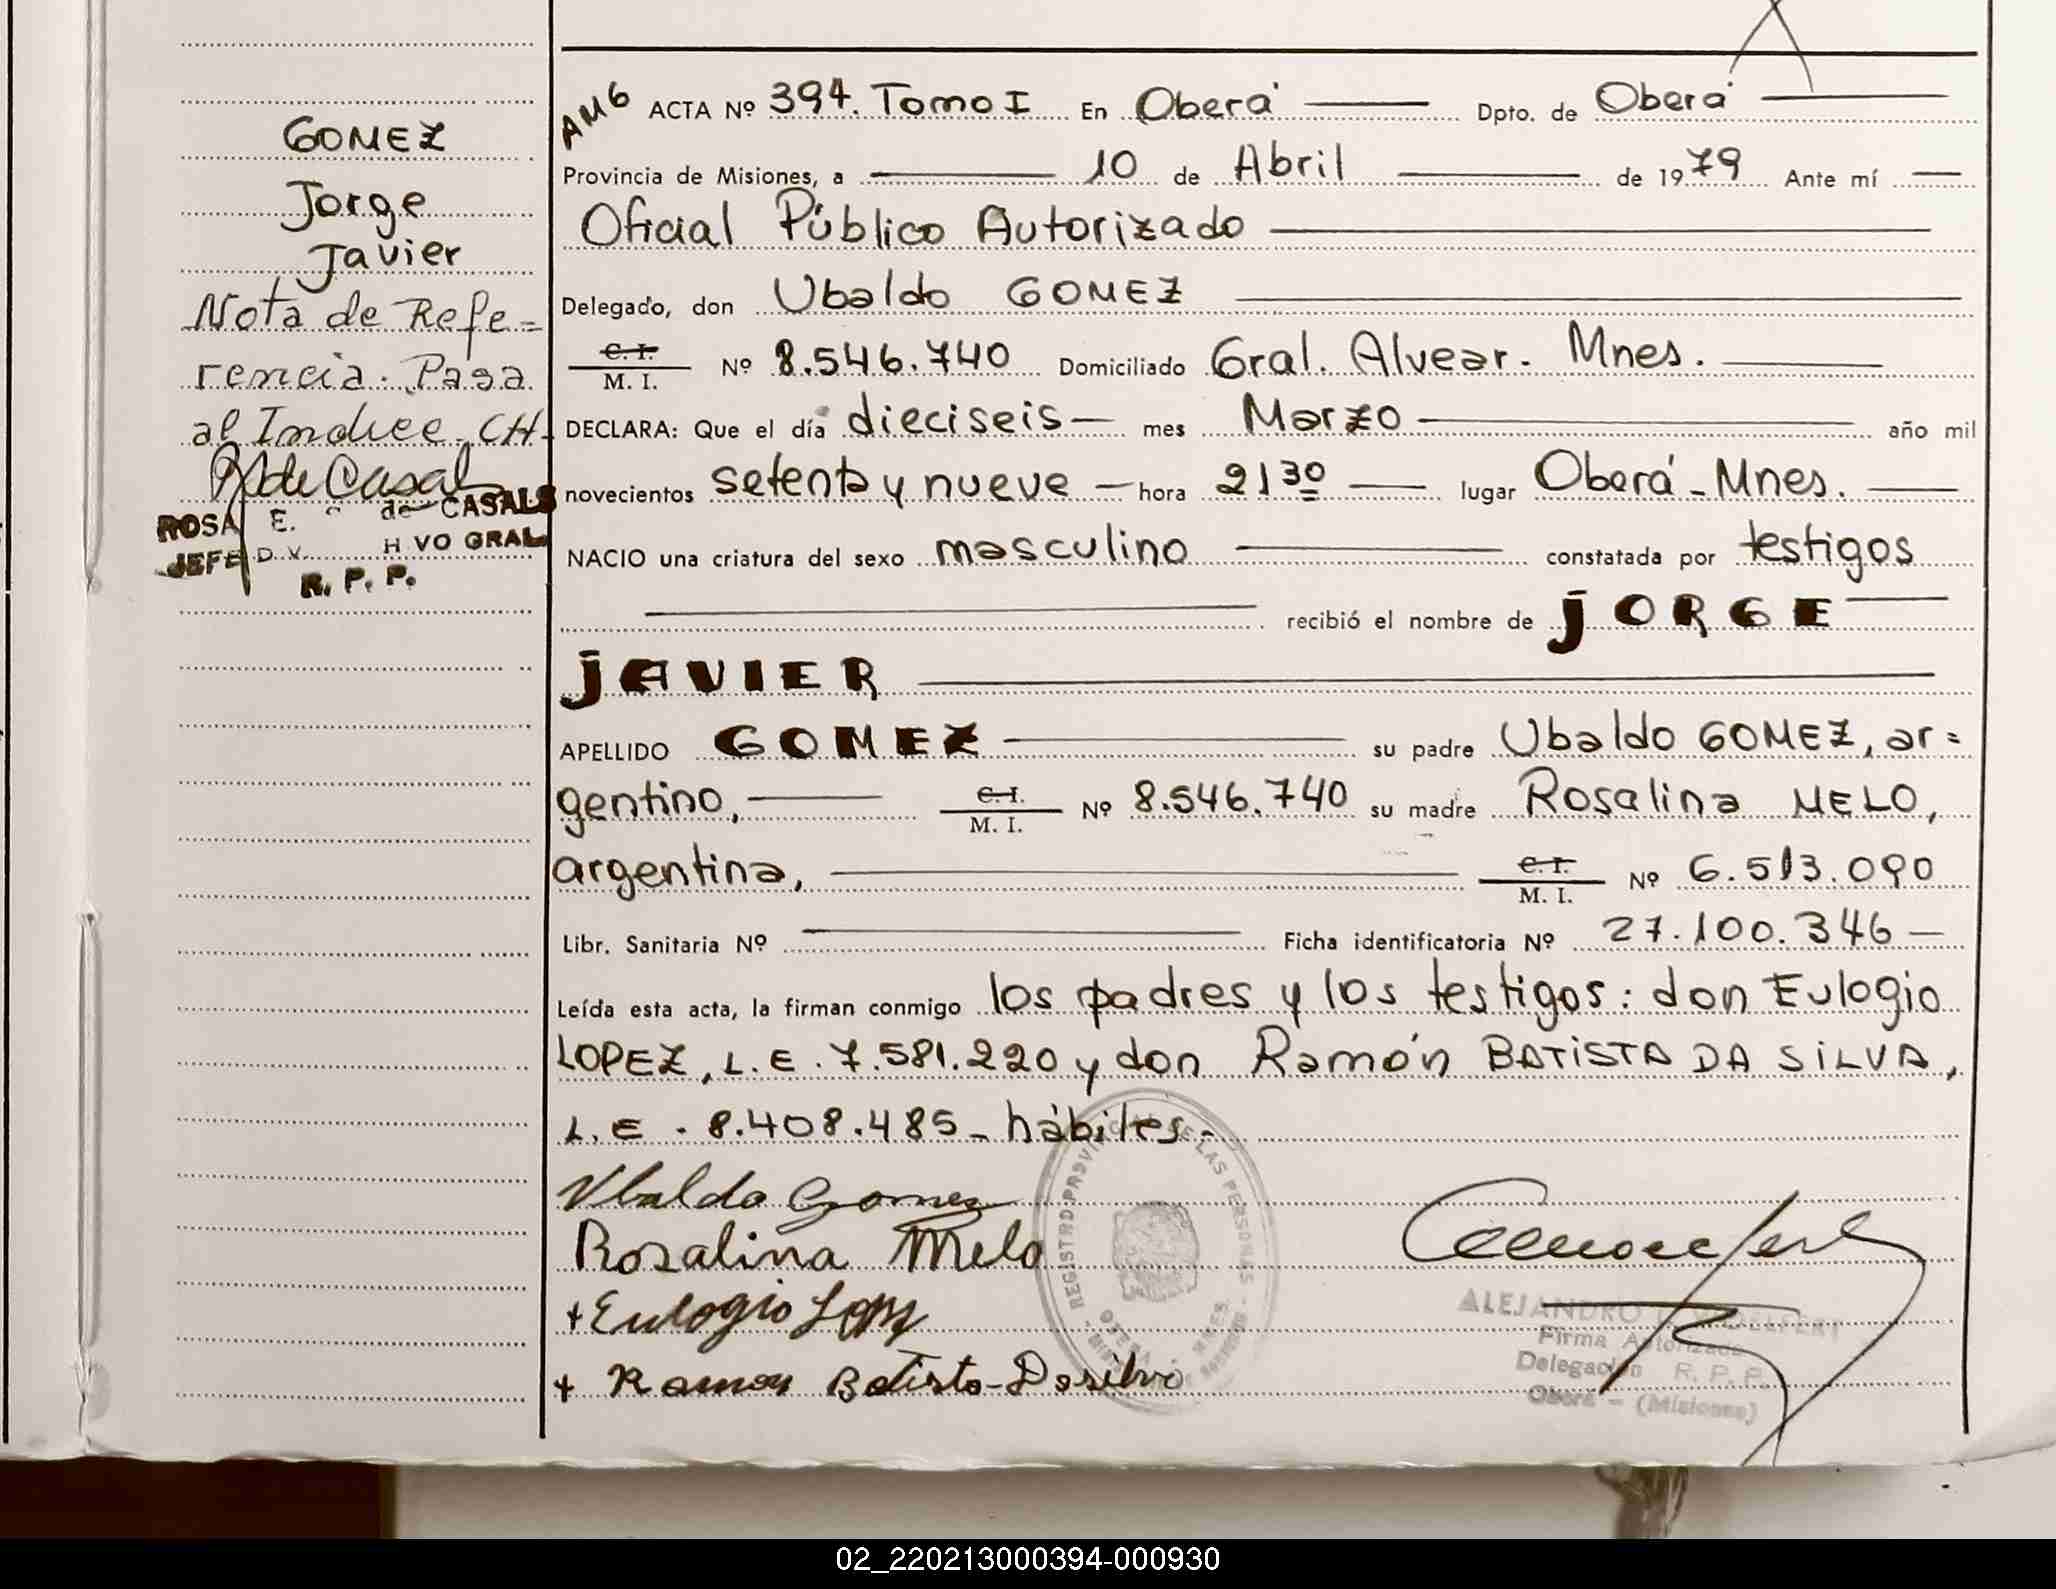 GOMEZ
Jorge
Javier
Nota de Refe=
rencia. Pasa
al Indice. CH.
R de Casals
ROSA E. de CASALS
JEFE DIV. VO GRAL
R. P. P.
AMG ACTA Nº 394. Tomo I En Oberá Dpto. de Oberá
Provincia de Misiones, a 10 de Abril de 1979 Ante mí
Oficial Público Autorizado
Delegado, don Ubaldo GOMEZ
C. I.
M. I. Nº 8.546.740 Domiciliado Gral. Alvear. Mnes.
DECLARA: Que el día dieciseis mes Marzo año mil
novecientos setenta y nueve hora 21 30 lugar Oberá - Mnes.
NACIO una criatura del sexo masculino constatada por testigos
recibió el nombre de JORGE
JAVIER
APELLIDO GOMEZ su padre Ubaldo GOMEZ, ar=
gentino, C. I. M. I. Nº 8.546.740 su madre Rosalina MELO,
argentina, C. I. M. I. Nº 6.513.090
Libr. Sanitaria Nº Ficha identificatoria Nº 27.100.346
Leída esta acta, la firman conmigo los padres y los testigos: don Eulogio
LOPEZ, L.E. 7.581.220 y don Ramón BATISTA DA SILVA,
L.E. 8.408.485 - hábiles -
Ubaldo Gomez
Rosalina Melo
+ Eulogio Lopez
+ Ramon Batista Dasilva
REGISTRO PROVINCIAL DE LAS PERSONAS
OBERA MNES.
ALEJANDRO
Firma Autorizada
Delegación R. P. P.
Oberá - (Misiones)
02_220213000394-000930